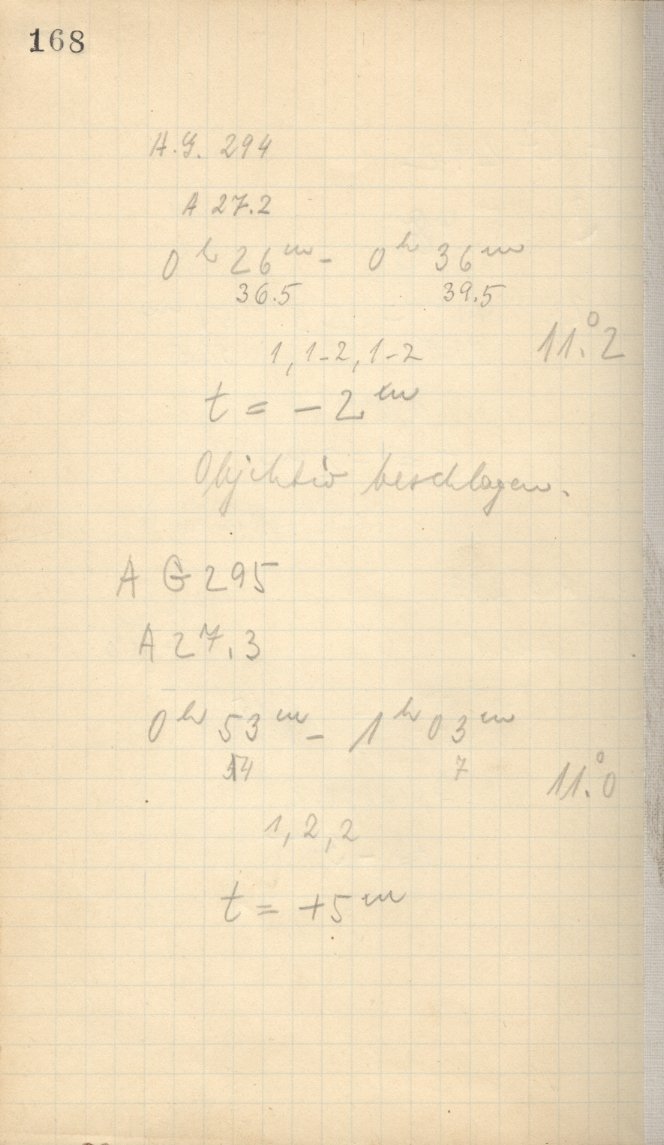 168
A.G. 294
A 27.2
0ʰ 26ᵐ - 0ʰ 36ᵐ
36.5 39.5
11.°2
1, 1-2, 1-2
t = -2ᵐ
Objektiv beschlagen.
A G 295
A 27.3
0ʰ 53ᵐ - 1ʰ 03ᵐ
54 7
11.°0
1, 2, 2
t = +5ᵐ